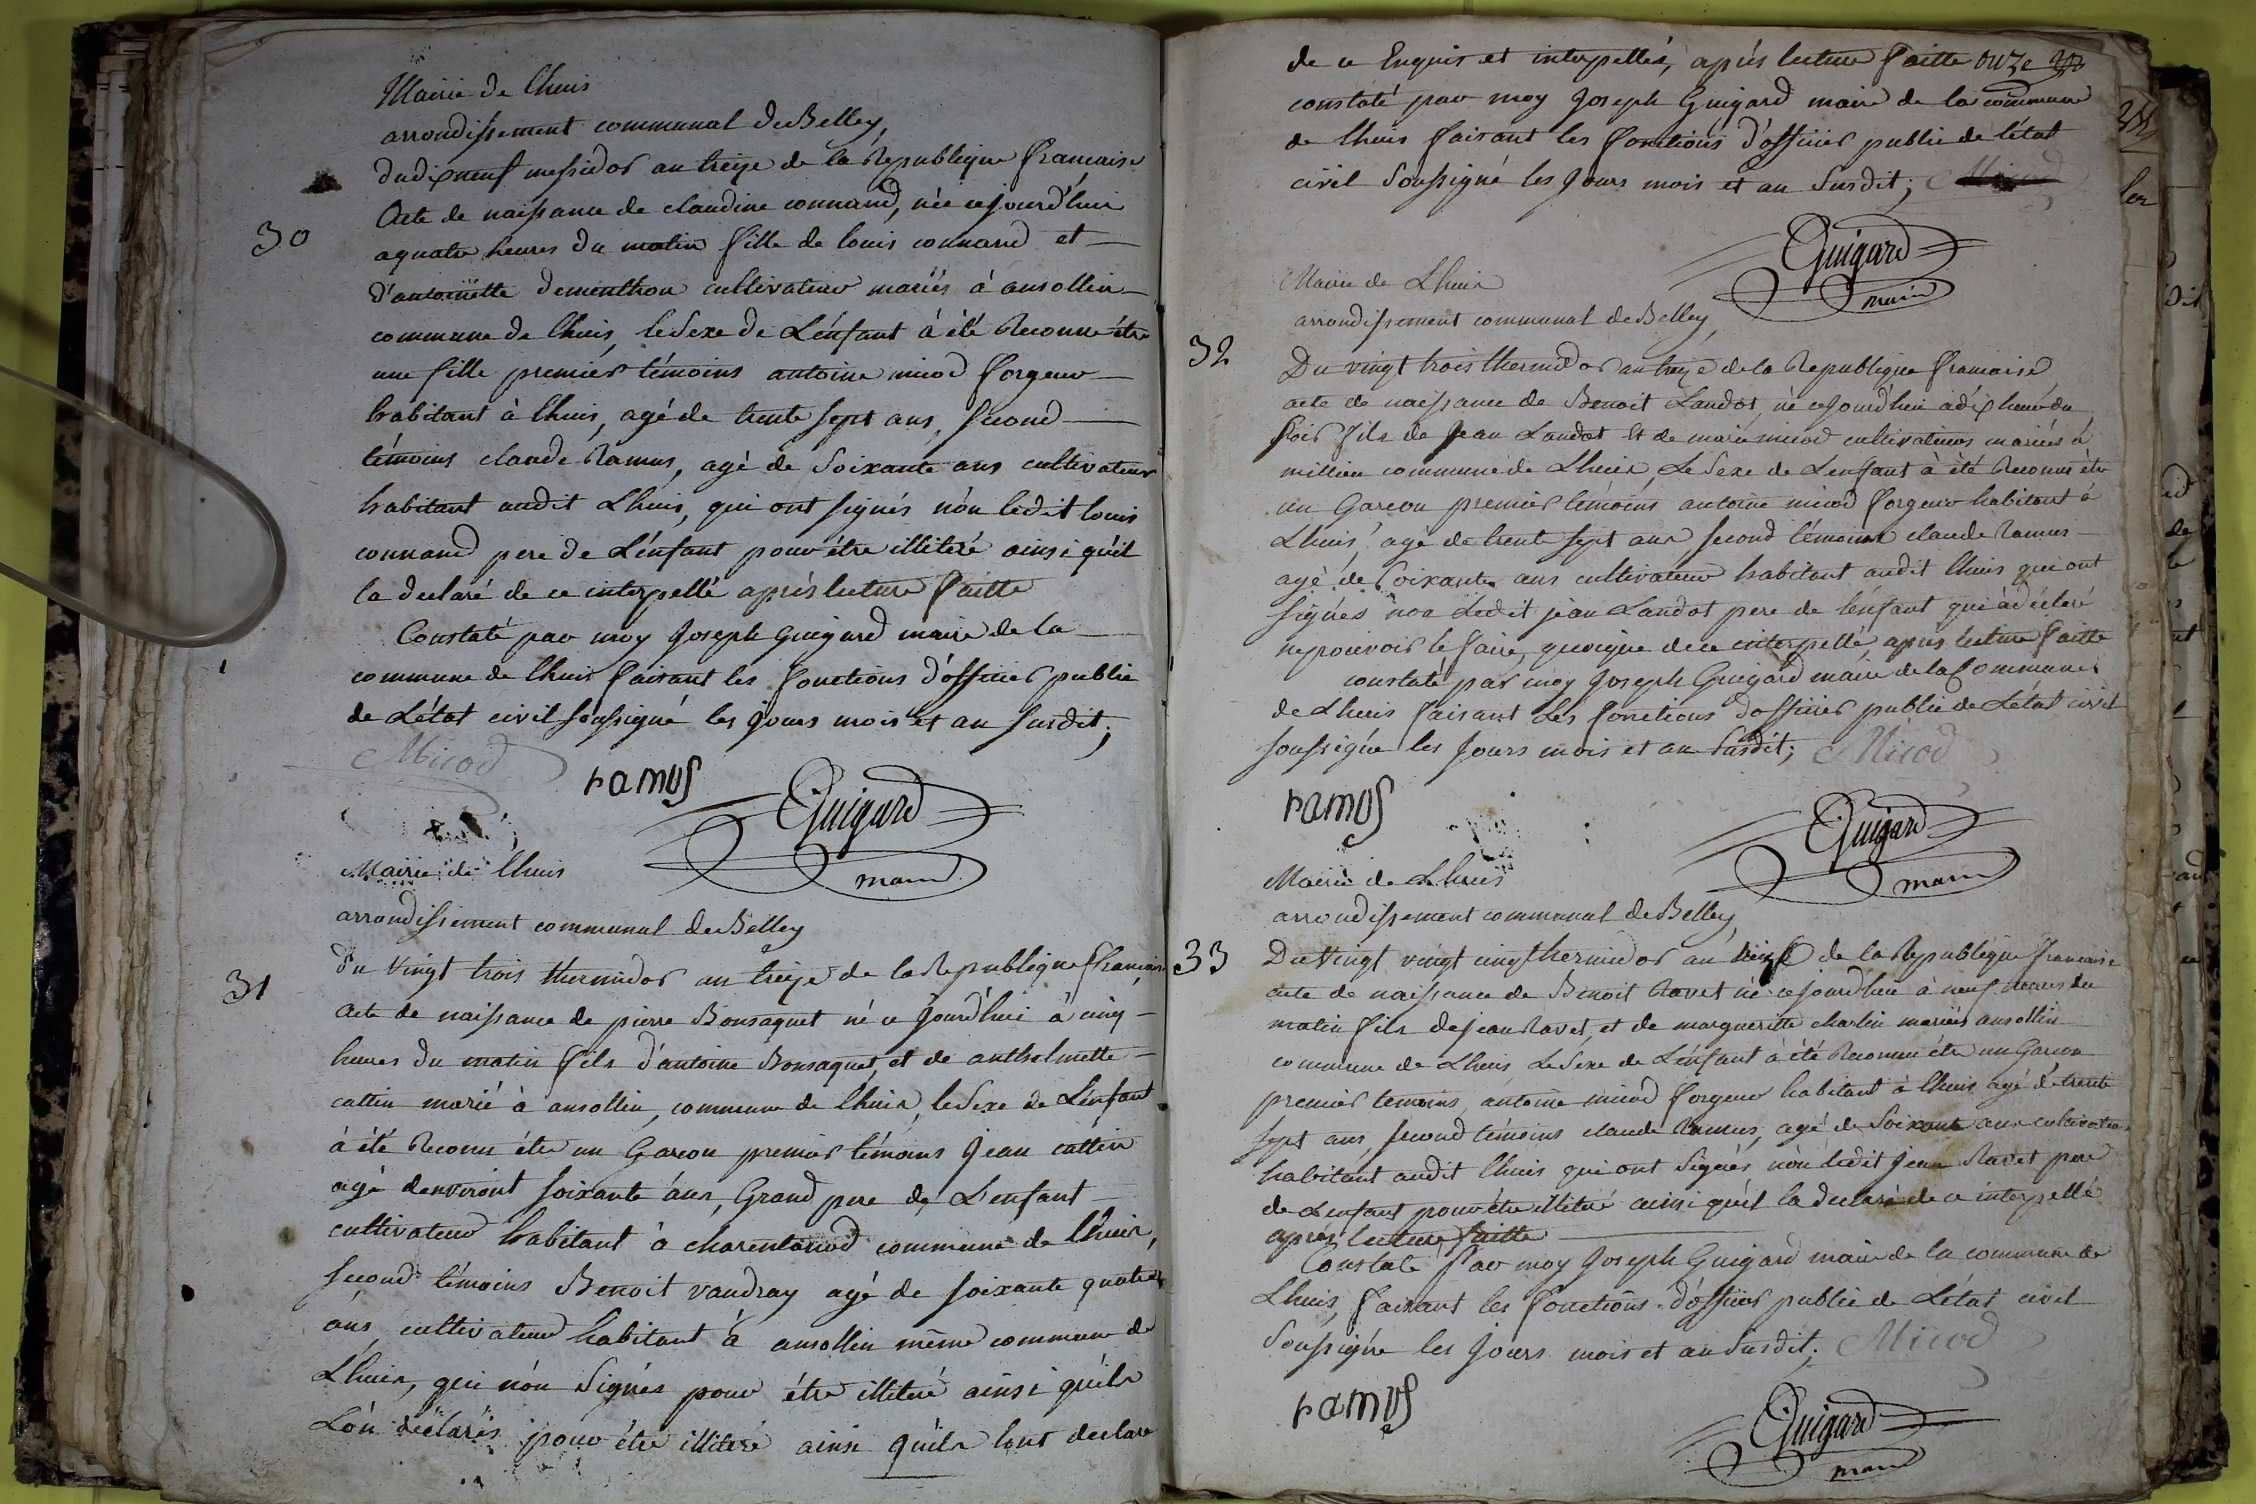 Mairie de Lhuis
arrondissement communal de Belley,
du dixneuf messidor an treize de la Republique francaise
30
Acte de naissance de claudine connand, née cejourd'hui
a quatre heures du matin fille de louis connand et
d'antoinette dementhon cultivateur mariés à ansollin
commune de lhuis, le Sexe de L'énfant à été Reconnu étre
une fille premier témoins antoine micod forgeur
habitant à lhuis, agé de trente sept ans, second
témoins claude Ramus, agé de Soixante ans cultivateur
habitant audit Lhuis, qui ont signés nón ledit louis
connand pere de L'énfant pour étre illiteré ainsi qu'il
la declaré de ce interpellé aprés lecture faitte
Constaté par moy Joseph Guigard maire de la
commune de lhuis faisant les fonctions d'officier public
de L'état civil soussigné les jours mois et an susdit;
Micod
ramus
Guigard
maire
Mairie de lhuis
arrondissement communal de Belley
31
du vingt trois thermidor an treize de la Republique francaise
Acte de naissance de pierre Bonsaquet né ce jourd'hui à cinq
heures du matin fils d'antoine Bonsaquet, et de anthelmette
cattin marié à ansollin, commune de lhuis, le Sexe de L'énfant
à été Reconu étre un Garcon premier témoins Jean cattin
agé denviront soixante áns, Grand pere de L'enfant
cultivateur habitant à charentonod commune de lhuis,
second témoins Benoit vaudray agé de soixante quatre
áns cultivateur habitant à ansollin même commune de
Lhuis, qui nón Signés pour étre illiteré ainsi qu'ils
Lón déclarés pour étre illiteré ainsi quils lont declare
de ce Enquis et interpellés, aprés lecture faitte
constaté par moy Joseph Guigard maire de la commune
de lhuis faisant les fonctions d'officier public de l'état
civil Soussigné les Jours mois et an susdit;
Guigard
maire
Mairie de Lhuis
arrondissement communal de Belley,
32
Du vingt trois thermidor an treize de la Republique francaise
acte de naissance de Benoit Landot, né cejourd'hui à dix heures du
soir fils de Jean Landot et de marie micod cultivateurs mariés à
millieu commune de Lhuis, Le Sexe de L'enfant à été Reconnu étre
un Garcon premier témoins antoine micod forgeur habitant à
Lhuis, agé de trent sept ans, second témoins claude Ramus
agé de Soixante ans cultivateur habitant audit lhuis qui ont
signés non Ledit jean Landot pere de l'énfant qui à declaré
ne pouvoir le faire, quoique de ce interpellé, aprés lecture faitte
constaté par moy Joseph Guigard maire de la Commune
de Lhuis faisant Les fonctions d'officier public de L'état civil
soussigné les Jours mois et an susdit; Micod
ramus
Guigard
maire
Mairie de Lhuis
arrondissement communal de Belley,
33
Du Vingt vingt cinq thermidor an treize de la Republique francaise
acte de naissance de Benoit Ravet né cejourd'hui à neuf heures du
matin fils de jean Ravet, et de margueritte charlin mariés ansollin
commune de Lhuis, Le Sexe de L'énfant à été Reconnu étre un Garcon
premier temoins, antoine micod forgeur habitant à lhuis agé de trente
sept ans, second témoins claude Ramus, agé de Soixante ans cultivateur
habitant audit lhuis qui ont Signés nón ledit jean Ravet pere
de Lenfant pour étre illiteré ainsi quil la declaré de ce interpellé
aprés lecture faitte
Constaté par moy Joseph Guigard maire de la commune de
Lhuis, faisant les fonctions d'officier public de L'état civil
Soussigné les Jours mois et an susdit; Micod
ramus
Guigard
maire